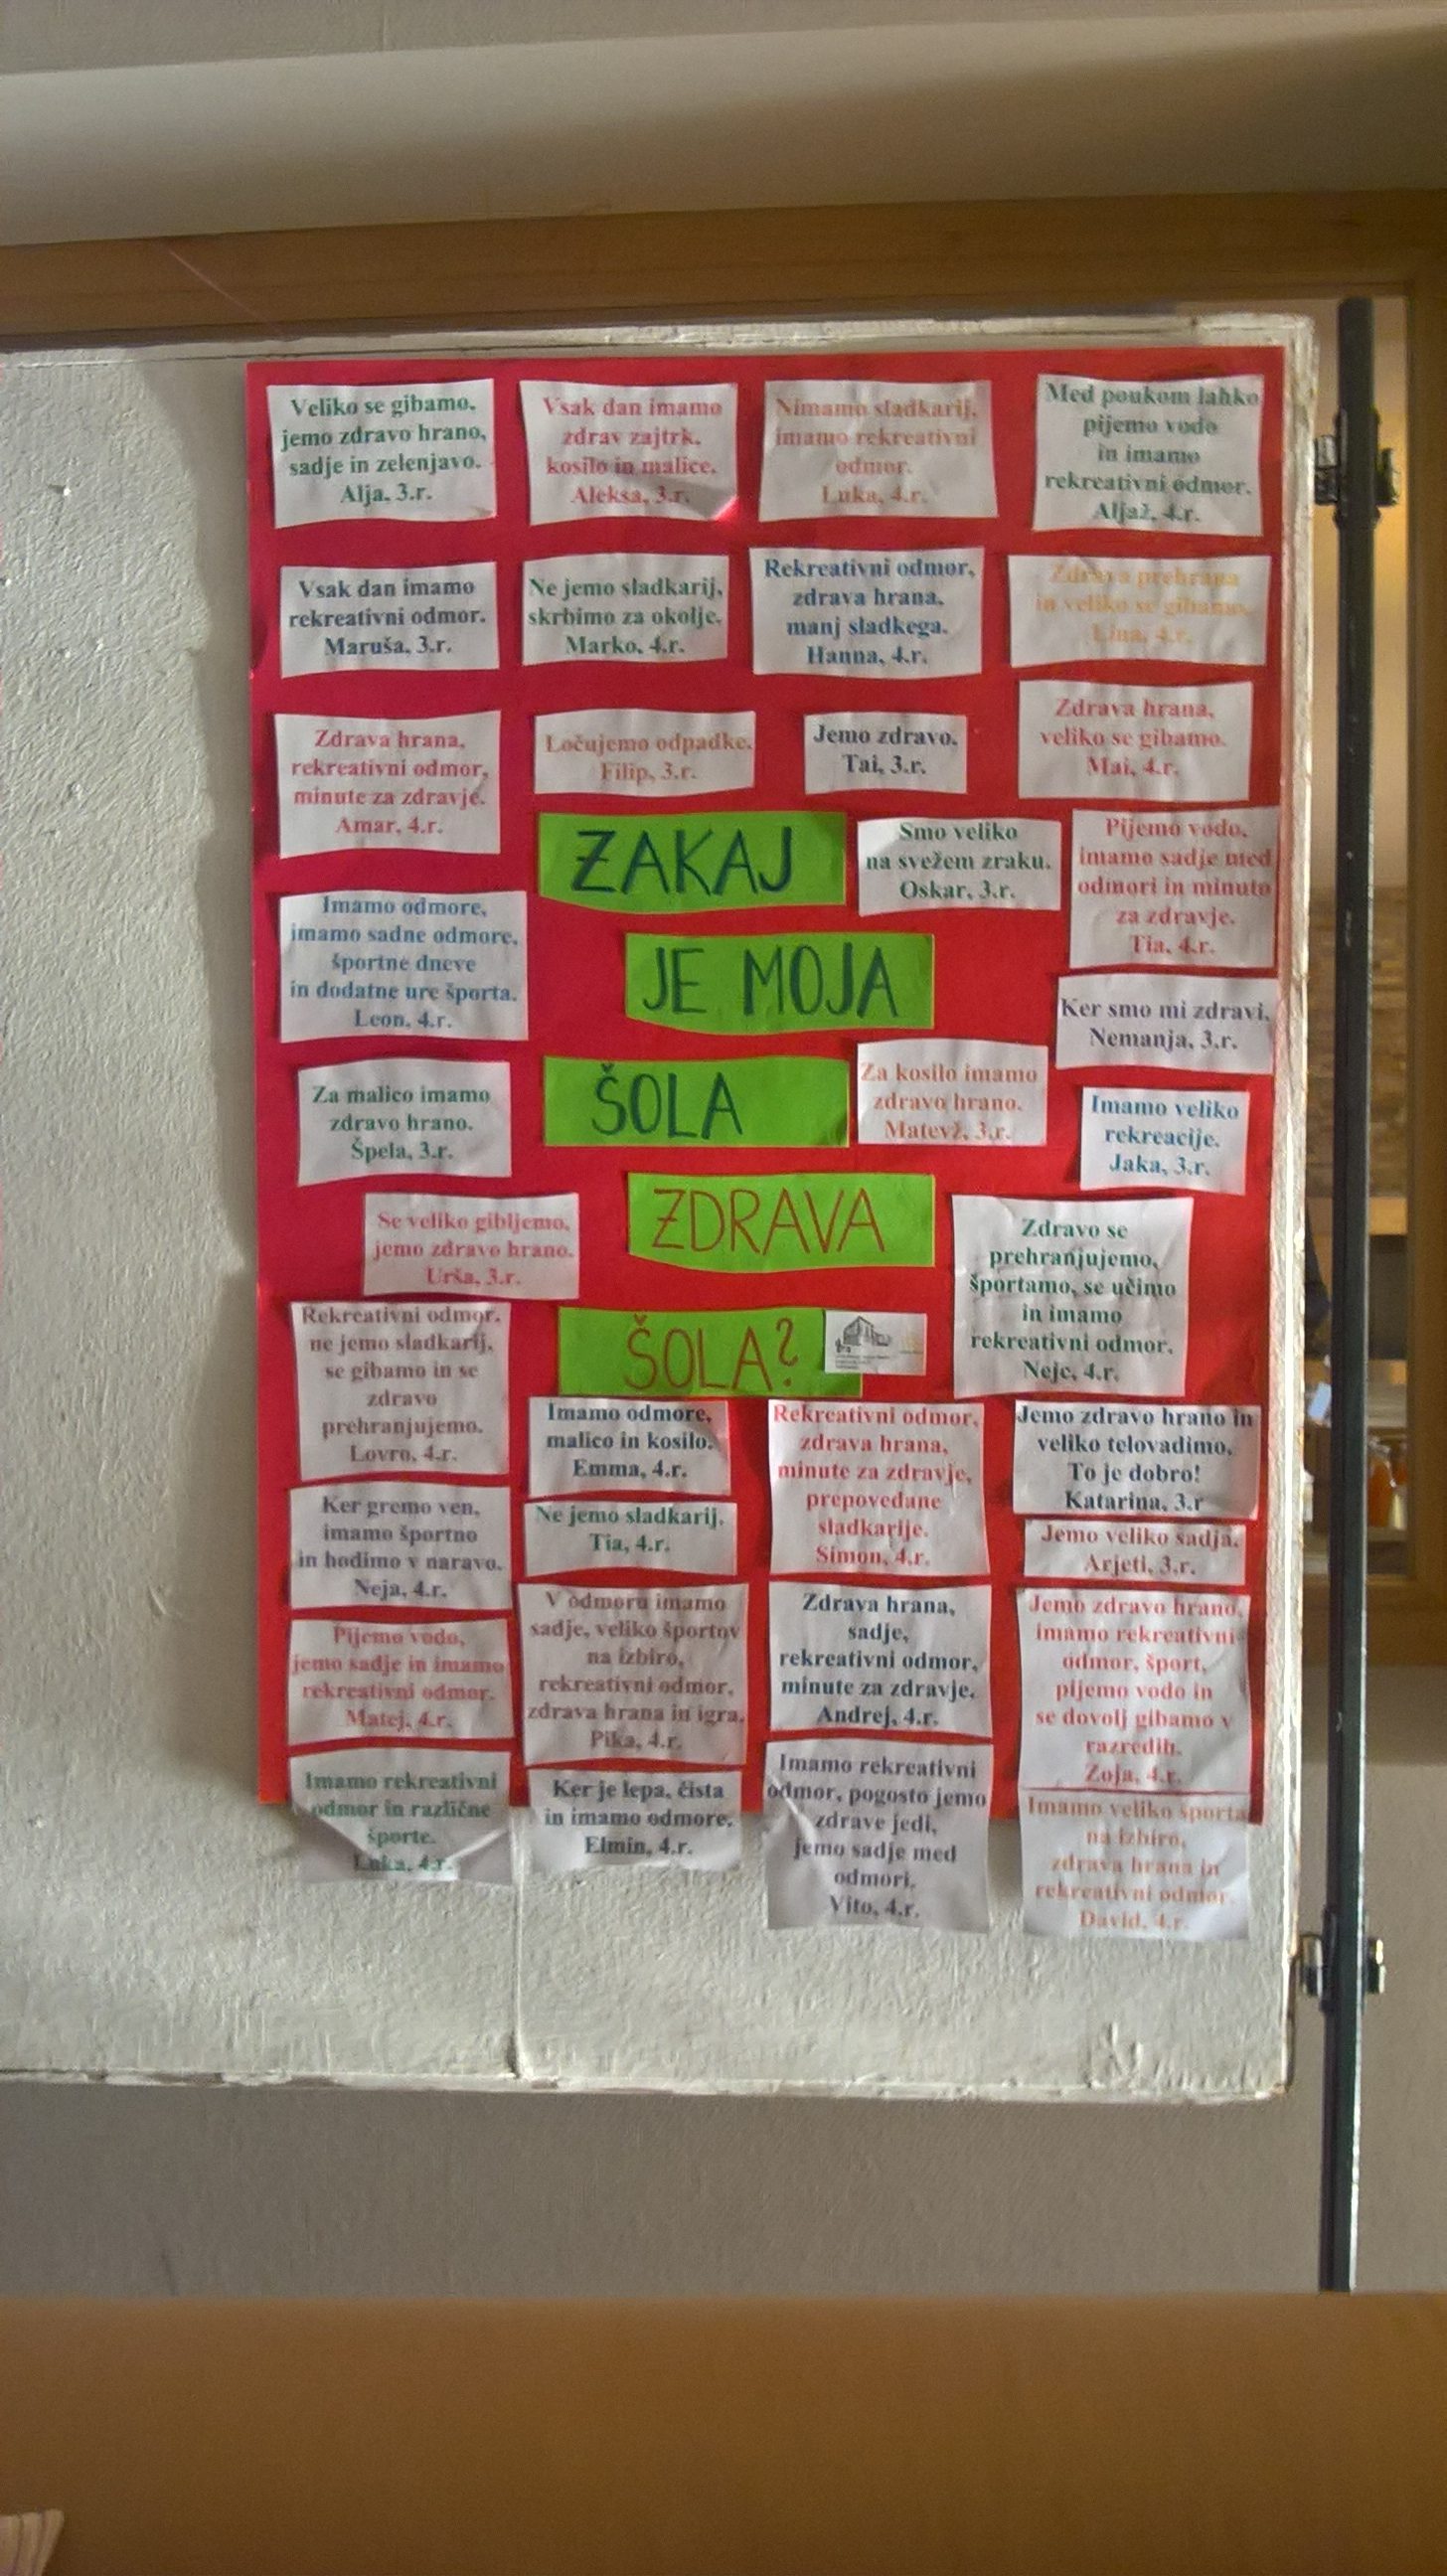 Veliko se gibamo,
jemo zdravo hrano,
sadje in zelenjavo.
Alja, 3.r.
Vsak dan imamo
zdrav zajtrk,
kosilo in malice.
Aleksa, 3.r.
Nimamo sladkarij,
imamo rekreativni
odmor.
Luka, 4.r.
Med poukom lahko
pijemo vodo
in imamo
rekreativni odmor.
Aljaž, 4.r.
Vsak dan imamo
rekreativni odmor.
Maruša, 3.r.
Ne jemo sladkarij,
skrbimo za okolje.
Marko, 4.r.
Rekreativni odmor,
zdrava hrana,
manj sladkega.
Hanna, 4.r.
Zdrava prehrana
in veliko se gibamo.
Lina, 4.r.
Zdrava hrana,
rekreativni odmor,
minute za zdravje.
Amar, 4.r.
Ločujemo odpadke.
Filip, 3.r.
Jemo zdravo.
Tai, 3.r.
Zdrava hrana,
veliko se gibamo.
Mai, 4.r.
ZAKAJ
JE MOJA
ŠOLA
ZDRAVA
ŠOLA?
Smo veliko
na svežem zraku.
Oskar, 3.r.
Pijemo vodo,
imamo sadje med
odmori in minuto
za zdravje.
Tia, 4.r.
Imamo odmore,
imamo sadne odmore,
športne dneve
in dodatne ure športa.
Leon, 4.r.
Ker smo mi zdravi.
Nemanja, 3.r.
Za malico imamo
zdravo hrano.
Špela, 3.r.
Za kosilo imamo
zdravo hrano.
Matevž, 3.r.
Imamo veliko
rekreacije.
Jaka, 3.r.
Se veliko gibljemo,
jemo zdravo hrano.
Urša, 3.r.
Zdravo se
prehranjujemo,
športamo, se učimo
in imamo
rekreativni odmor.
Nejc, 4.r.
Rekreativni odmor,
ne jemo sladkarij,
se gibamo in se
zdravo
prehranjujemo.
Lovro, 4.r.
Imamo odmore,
malico in kosilo.
Emma, 4.r.
Rekreativni odmor,
zdrava hrana,
minute za zdravje,
prepovedane
sladkarije.
Simon, 4.r.
Jemo zdravo hrano in
veliko telovadimo.
To je dobro!
Katarina, 3.r
Ker gremo ven,
imamo športno
in hodimo v naravo.
Neja, 4.r.
Ne jemo sladkarij.
Tia, 4.r.
Jemo veliko sadja.
Arjeti, 3.r.
Pijemo vodo,
jemo sadje in imamo
rekreativni odmor.
Matej, 4.r.
V odmoru imamo
sadje, veliko športov
na izbiro,
rekreativni odmor,
zdrava hrana in igra.
Pika, 4.r.
Zdrava hrana,
sadje,
rekreativni odmor,
minute za zdravje.
Andrej, 4.r.
Jemo zdravo hrano,
imamo rekreativni
odmor, šport,
pijemo vodo in
se dovolj gibamo v
razredih.
Zoja, 4.r.
Imamo rekreativni
odmor in različne
športe.
Luka, 4.r.
Ker je lepa, čista
in imamo odmore.
Elmin, 4.r.
Imamo rekreativni
odmor, pogosto jemo
zdrave jedi,
jemo sadje med
odmori.
Vito, 4.r.
Imamo veliko športa
na izbiro,
zdrava hrana in
rekreativni odmor.
David, 4.r.